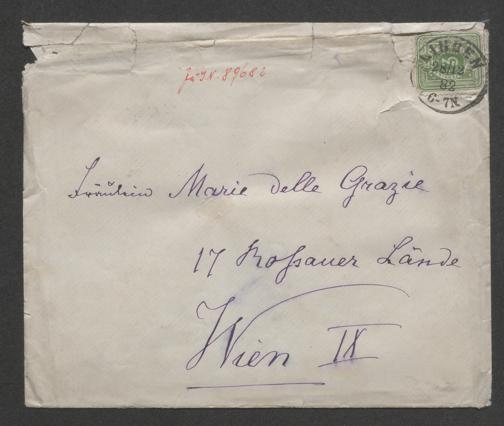 J. N. 89682
Fräulein Marie delle Grazie
17 Roßauer Lände
Wien IX
28 12
82
6-7N.